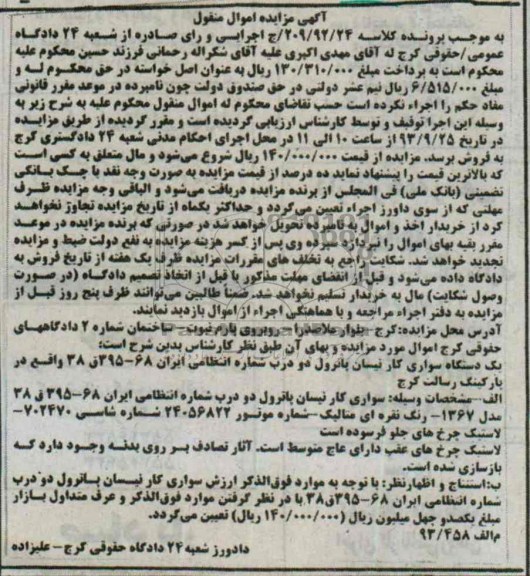 آگهی مزایده اموال منقول
به موجب پرونده کلاسه ۲۰۹/۹۲/۲۴/ج اجرایی و رای صادره از شعبه ۲۴ دادگاه
عمومی/حقوقی کرج له آقای مهدی اکبری علیه آقای شکراله رحمانی فرزند حسین محکوم علیه
محکوم است به پرداخت مبلغ ۱۳۰/۳۱۰/۰۰۰ ریال به عنوان اصل خواسته در حق محکوم له و
مبلغ ۶/۵۱۵/۰۰۰ ریال نیم عشر دولتی در حق صندوق دولت چون نامبرده در موعد مقرر قانونی
مفاد حکم را اجراء نکرده است حسب تقاضای محکوم له اموال منقول محکوم علیه به شرح زیر به
وسیله این اجرا توقیف و توسط کارشناس ارزیابی گردیده است و مقرر گردیده از طریق مزایده
در تاریخ ۹۳/۹/۲۵ از ساعت ۱۰ الی ۱۱ در محل اجرای احکام مدنی شعبه ۲۴ دادگستری کرج
به فروش برسد. مزایده از قیمت ۱۴۰/۰۰۰/۰۰۰ ریال شروع می‌شود و مال متعلق به کسی است
که بالاترین قیمت را پیشنهاد نماید ده درصد از قیمت مزایده به صورت وجه نقد یا چک بانکی
تضمینی (بانک ملی) فی المجلس از برنده مزایده دریافت می‌شود و الباقی وجه مزایده ظرف
مهلتی که از سوی داورز اجراء تعیین می‌گردد و حداکثر یکماه از تاریخ مزایده تجاوز نخواهد
کرد از خریدار اخذ و اموال به نامبرده تحویل خواهد شد در صورتی که برنده مزایده در موعد
مقرر بقیه بهای اموال را نپردازد سپرده وی پس از کسر هزینه مزایده به نفع دولت ضبط و مزایده
تجدید خواهد شد. شکایت راجع به تخلف های مقررات مزایده ظرف یک هفته از تاریخ فروش به
دادگاه داده می‌شود و قبل از انقضای مهلت مذکور یا قبل از اتخاذ تصمیم دادگاه (در صورت
وصول شکایت) مال به خریدار تسلیم نخواهد شد. ضمناً طالبین می‌توانند ظرف پنج روز قبل از
مزایده به دفتر اجراء مراجعه و با هماهنگی اجراء از اموال بازدید نمایند.
آدرس محل مزایده: کرج - بلوار ملاصدرا - روبروی پارک نبوت - ساختمان شماره ۲ دادگاههای
حقوقی کرج اموال مورد مزایده و بهای آن طبق نظر کارشناس بدین شرح است:
یک دستگاه سواری کار نیسان پاترول دو درب شماره انتظامی ایران ۶۸-۳۹۵ق ۳۸ واقع در
پارکینگ رسالت کرج
الف-مشخصات وسیله: سواری کار نیسان پاترول دو درب شماره انتظامی ایران ۶۸-۳۹۵ ق ۳۸
مدل ۱۳۶۷- رنگ نقره ای متالیک-شماره موتور ۲۴۰۵۶۸۲۲ شماره شاسی ۷۰۲۴۷۰-
لاستیک چرخ های جلو فرسوده است
لاستیک چرخ های عقب دارای عاج متوسط است. آثار تصادف بر روی بدنه وجود دارد که
بازسازی شده است.
ب:استنتاج و اظهارنظر: با توجه به موارد فوق‌الذکر ارزش سواری کار نیسان پاترول دو درب
شماره انتظامی ایران ۶۸-۳۹۵ق۳۸ با در نظر گرفتن موارد فوق‌الذکر و عرف متداول بازار
مبلغ یکصدو چهل میلیون ریال (۱۴۰/۰۰۰/۰۰۰ ریال) تعیین می‌گردد.
م‌الف ۹۳/۴۵۸
دادورز شعبه ۲۴ دادگاه حقوقی کرج- علیزاده